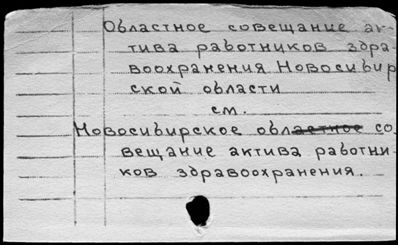 Областное совещание ак-
тива работников здра-
воохранения Новосибир
ской области
см.
Новосибирское областное со
вещание актива работни-
ков здравоохранения.